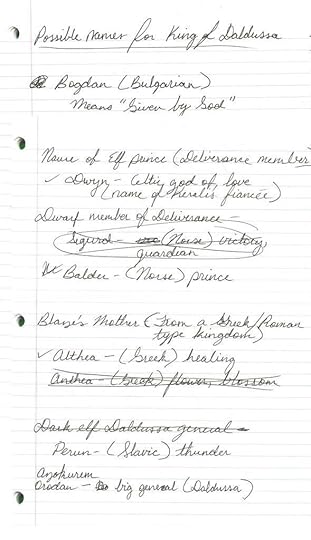 Possible names for King of Daldussa
Bogdan (Bulgarian)
Means "Given by God"
Name of Elf prince (Deliverance member)
✓ Owyn - Celtic god of love
(name of Keralis fiancée)
Dwarf member of Deliverance -
Sigurd - (Norse) victory,
guardian
Balder - (Norse) prince
Blaze's Mother (From a Greek/Roman
type kingdom)
✓ Althea - (Greek) healing
Anthea - (Greek) flower, blossom
Dark elf Daldussa general -
Perun - (Slavic) thunder
Orodan - big general (Daldussa)